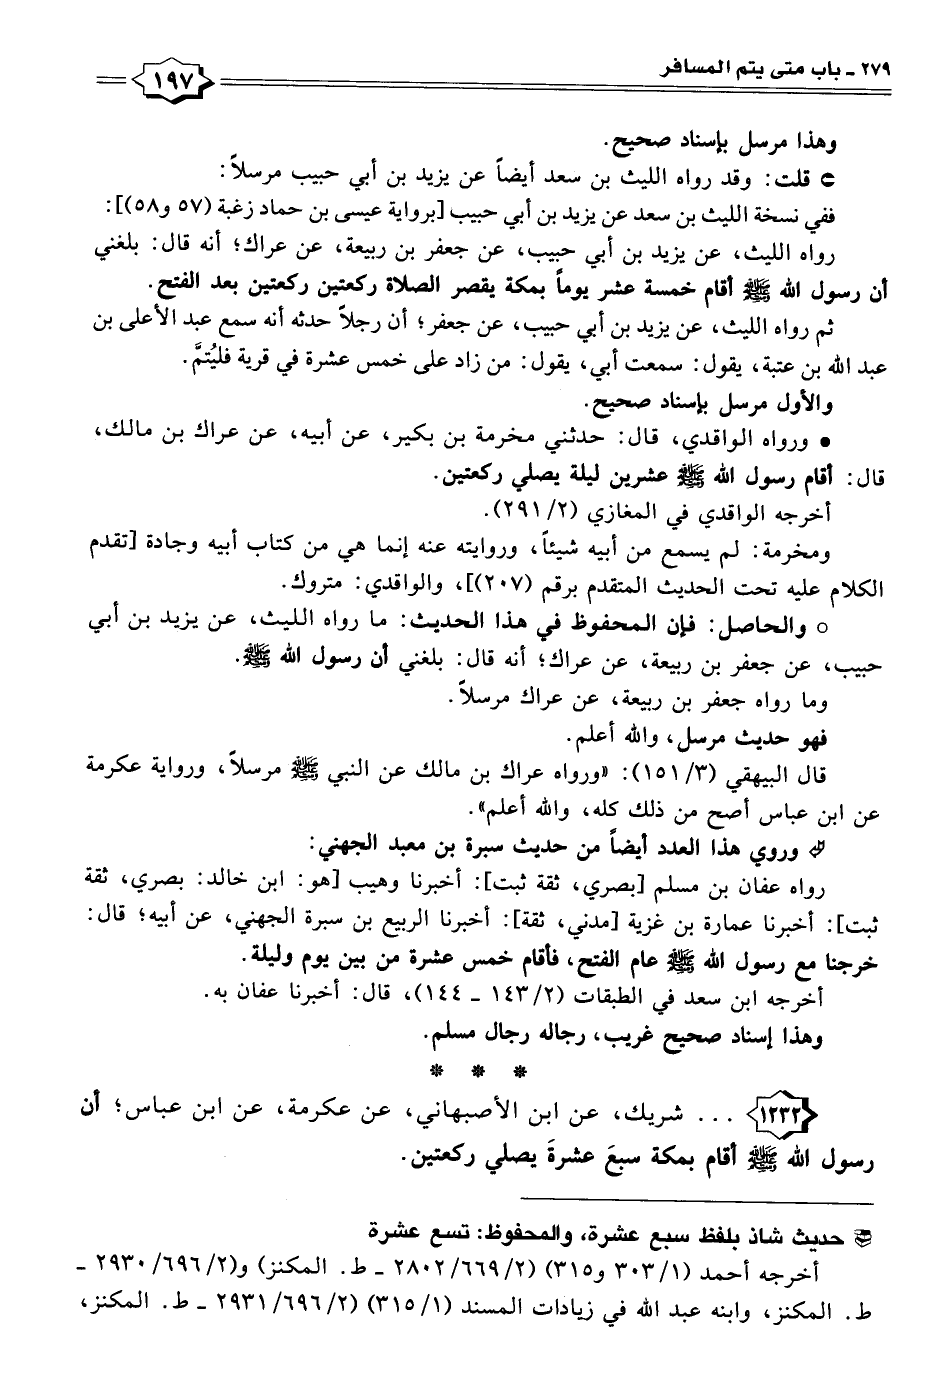 ٢٧٩ ـ باب متى يتم المسافر
١٩٧
وهذا مرسل بإسناد صحيح.
قلت: وقد رواه الليث بن سعد أيضاً عن يزيد بن أبي حبيب مرسلاً:
ففي نسخة الليث بن سعد عن يزيد بن أبي حبيب [برواية عيسى بن حماد زغبة (٥٧ و٥٨)]:
رواه الليث، عن يزيد بن أبي حبيب، عن جعفر بن ربيعة، عن عراك؛ أنه قال: بلغني
أن رسول الله ﷺ أقام خمسة عشر يوماً بمكة يقصر الصلاة ركعتين ركعتين بعد الفتح.
ثم رواه الليث، عن يزيد بن أبي حبيب، عن جعفر؛ أن رجلاً حدثه أنه سمع عبد الأعلى بن
عبد الله بن عتبة، يقول: سمعت أبي، يقول: من زاد على خمس عشرة في قرية فليُتمَّ.
والأول مرسل بإسناد صحيح.
• ورواه الواقدي، قال: حدثني مخرمة بن بكير، عن أبيه، عن عراك بن مالك،
قال: أقام رسول الله ﷺ عشرين ليلة يصلي ركعتين.
أخرجه الواقدي في المغازي (٢/ ٢٩١).
ومخرمة: لم يسمع من أبيه شيئاً، وروايته عنه إنما هي من كتاب أبيه وجادة [تقدم
الكلام عليه تحت الحديث المتقدم برقم (٢٠٧)]، والواقدي: متروك.
○ والحاصل: فإن المحفوظ في هذا الحديث: ما رواه الليث، عن يزيد بن أبي
حبيب، عن جعفر بن ربيعة، عن عراك؛ أنه قال: بلغني أن رسول الله ﷺ.
وما رواه جعفر بن ربيعة، عن عراك مرسلاً.
فهو حديث مرسل، والله أعلم.
قال البيهقي (٣/ ١٥١): «ورواه عراك بن مالك عن النبي ﷺ مرسلاً، ورواية عكرمة
عن ابن عباس أصح من ذلك كله، والله أعلم».
وروي هذا العدد أيضاً من حديث سبرة بن معبد الجهني:
رواه عفان بن مسلم [بصري، ثقة ثبت]: أخبرنا وهيب [هو: ابن خالد: بصري، ثقة
ثبت]: أخبرنا عمارة بن غزية [مدني، ثقة]: أخبرنا الربيع بن سبرة الجهني، عن أبيه؛ قال:
خرجنا مع رسول الله ﷺ عام الفتح، فأقام خمس عشرة من بين يوم وليلة.
أخرجه ابن سعد في الطبقات (٢/ ١٤٣ ـ ١٤٤)، قال: أخبرنا عفان به.
وهذا إسناد صحيح غريب، رجاله رجال مسلم.
* * *
١٢٣٢ ... شريك، عن ابن الأصبهاني، عن عكرمة، عن ابن عباس؛ أن
رسول الله ﷺ أقام بمكة سبعَ عشرةَ يصلي ركعتين.
حديث شاذ بلفظ سبع عشرة، والمحفوظ: تسع عشرة
أخرجه أحمد (١/ ٣٠٣ و٣١٥) (٢/ ٦٦٩/ ٢٨٠٢ ـ ط. المكنز) و(٢/ ٦٩٦/ ٢٩٣٠ ـ
ط. المكنز، وابنه عبد الله في زيادات المسند (١/ ٣١٥) (٢/ ٦٩٦/ ٢٩٣١ ـ ط. المكنز،